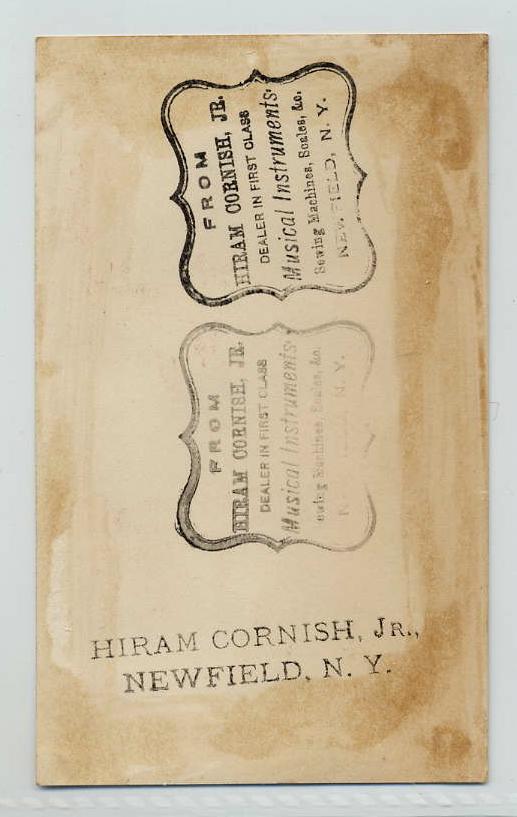 FROM
HIRAM CORNISH, JR.
DEALER IN FIRST CLASS
Musical Instruments,
Sewing Machines, Scales, &c.
NEWFIELD, N. Y.
FROM
HIRAM CORNISH, JR.
DEALER IN FIRST CLASS
Musical Instruments,
ewing Machines, Scales, &c.
N. Y.
HIRAM CORNISH, JR.,
NEWFIELD, N. Y.